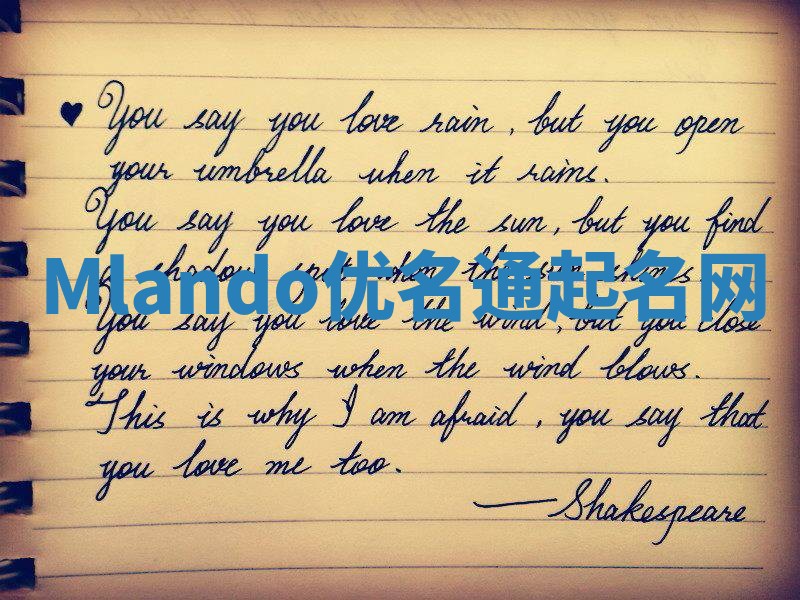 ♥ You say you love rain, but you open
your umbrella when it rains.
You say you love the sun, but you find
a shadow spot when the sun shines
Mlando优名通起名网
You say you love the wind, but you close
your windows when the wind blows.
This is why I am afraid, you say that
you love me too.
—Shakespeare